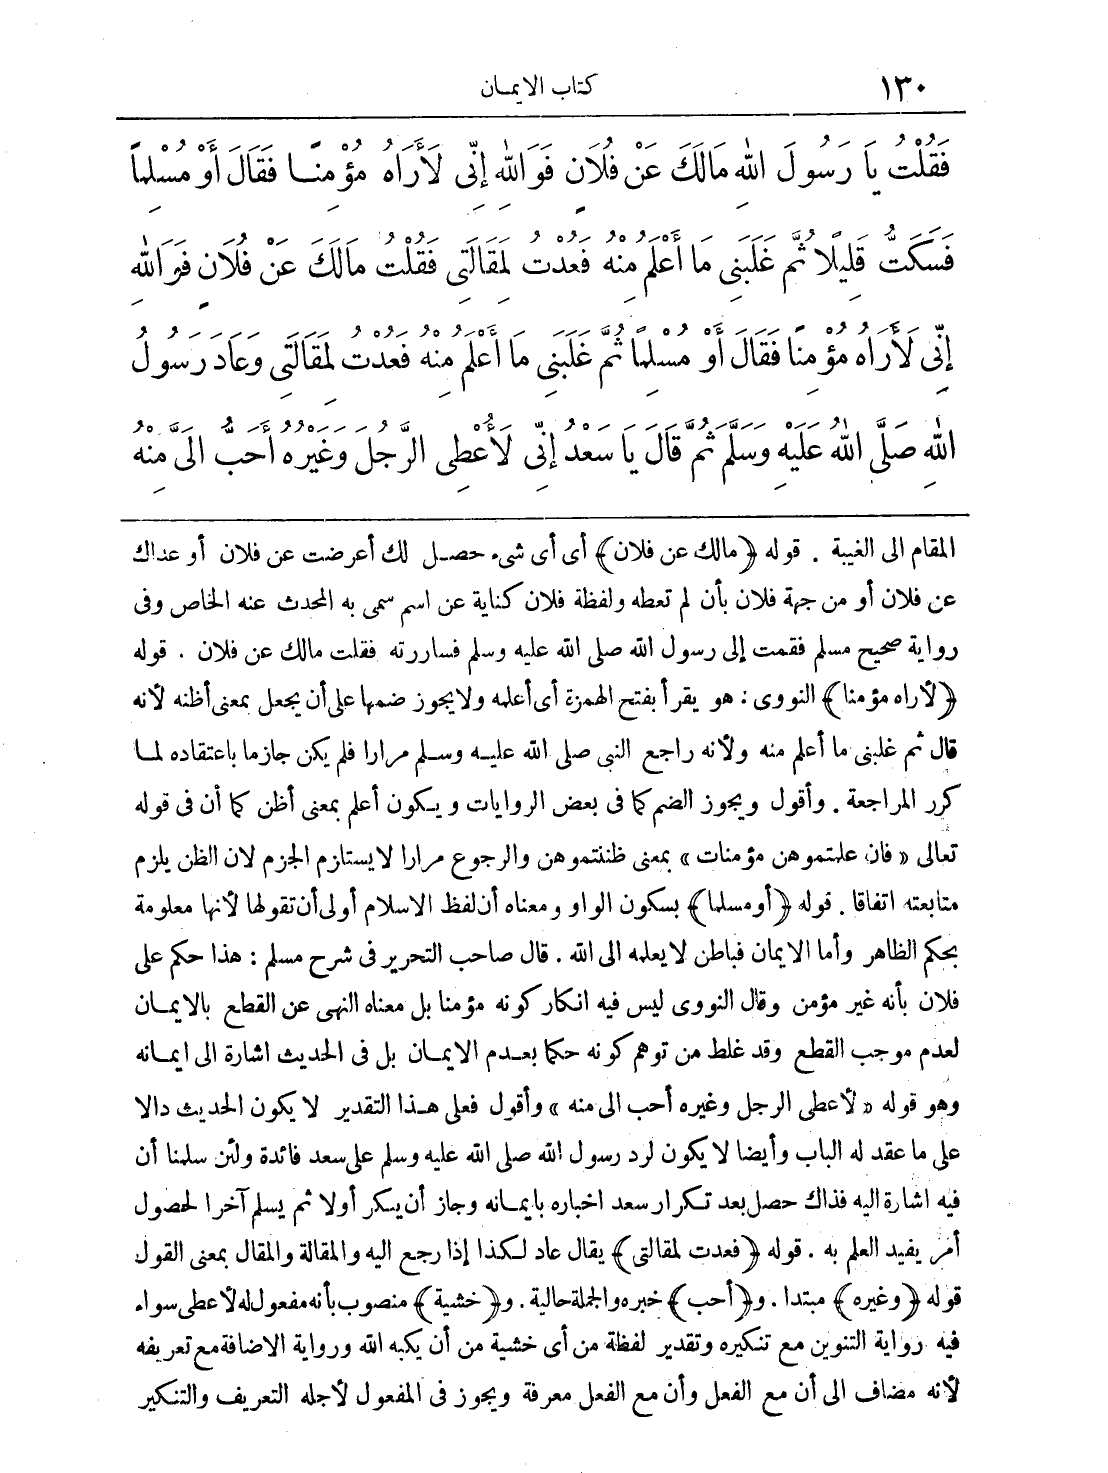 ١٣٠
كتاب الايمان
فَقُلْتُ يَا رَسُولَ اللهِ مَالَكَ عَنْ فُلَانٍ فَوَاللهِ إِنِّى لَأَرَاهُ مُؤْمِنًا فَقَالَ أَوْ مُسْلِمًا
فَسَكَتُّ قَلِيلًا ثُمَّ غَلَبَنِى مَا أَعْلَمُ مِنْهُ فَعُدْتُ لِمَقَالَتِى فَقُلْتُ مَالَكَ عَنْ فُلَانٍ فَوَاللهِ
إِنِّى لَأَرَاهُ مُؤْمِنًا فَقَالَ أَوْ مُسْلِمًا ثُمَّ غَلَبَنِى مَا أَعْلَمُ مِنْهُ فَعُدْتُ لِمَقَالَتِى وَعَادَ رَسُولُ
اللهِ صَلَّى اللهُ عَلَيْهِ وَسَلَّمَ ثُمَّ قَالَ يَا سَعْدُ إِنِّى لَأُعْطِى الرَّجُلَ وَغَيْرُهُ أَحَبُّ الَىَّ مِنْهُ
المقام الى الغيبة . قوله ﴿مالك عن فلان﴾ أى أى شىء حصل لك أعرضت عن فلان أو عداك
عن فلان أو من جهة فلان بأن لم تعطه ولفظة فلان كناية عن اسم سمى به المحدث عنه الخاص وفى
رواية صحيح مسلم فقمت إلى رسول الله صلى الله عليه وسلم فساررته فقلت مالك عن فلان . قوله
﴿لأراه مؤمنا﴾ النووى : هو يقرأ بفتح الهمزة أى أعلمه ولا يجوز ضمها على أن يجعل بمعنى أظنه لأنه
قال ثم غلبنى ما أعلم منه ولأنه راجع النبى صلى الله عليه وسلم مرارا فلم يكن جازما باعتقاده لما
كرر المراجعة . وأقول ويجوز الضم كما فى بعض الروايات ويكون أعلم بمعنى أظن كما أن فى قوله
تعالى «فان علمتموهن مؤمنات» بمعنى ظننتموهن والرجوع مرارا لا يستلزم الجزم لان الظن يلزم
متابعته اتفاقا . قوله ﴿أو مسلما﴾ بسكون الواو ومعناه أن لفظ الاسلام أولى أن تقولها لأنها معلومة
بحكم الظاهر وأما الايمان فباطن لا يعلمه الى الله . قال صاحب التحرير فى شرح مسلم : هذا حكم على
فلان بأنه غير مؤمن وقال النووى ليس فيه انكار كونه مؤمنا بل معناه النهى عن القطع بالايمان
لعدم موجب القطع وقد غلط من توهم كونه حكما بعدم الايمان بل فى الحديث اشارة الى ايمانه
وهو قوله «لأعطى الرجل وغيره أحب الى منه» وأقول فعلى هذا التقدير لا يكون الحديث دالا
على ما عقد له الباب وأيضا لا يكون لرد رسول الله صلى الله عليه وسلم على سعد فائدة ولئن سلمنا أن
فيه اشارة اليه فذاك حصل بعد تكرار سعد اخباره بايمانه وجاز أن ينكر أولا ثم يسلم آخرا لحصول
أمر يفيد العلم به . قوله ﴿فعدت لمقالتى﴾ يقال عاد لكذا إذا رجع اليه والمقالة والمقال بمعنى القول
قوله ﴿وغيره﴾ مبتدا . و﴿أحب﴾ خبره والجملة حالية . و﴿خشية﴾ منصوب بأنه مفعول له لأعطى سواء
فيه رواية التنوين مع تنكيره وتقدير لفظة من أى خشية من أن يكبه الله ورواية الاضافة مع تعريفه
لأنه مضاف الى أن مع الفعل وأن مع الفعل معرفة ويجوز فى المفعول لأجله التعريف والتنكير